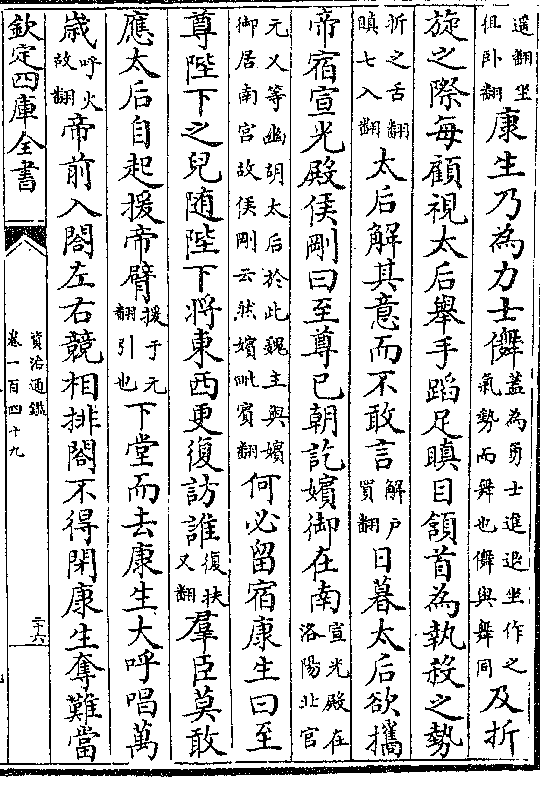 遥翻坐徂卧翻康生乃為力士儛蓋為勇士進退坐作之氣勢而舞也儛與舞同及折
旋之際每顧視太后舉手蹈足瞋目頷首為執殺之勢
折之舌翻瞋七人翻太后解其意而不敢言解户買翻日暮太后欲攜
帝宿宣光殿侯剛曰至尊已朝訖嬪御在南宣光殿在洛陽北宫
元乂等幽胡太后於此魏主與嬪御居南宫故侯剛云然嬪毗賓翻何必留宿康生曰至
尊陛下之兒随陛下將東西更復訪誰復扶又翻羣臣莫敢
應太后自起援帝臂援于元翻引也下堂而去康生大呼唱萬
歳呼火故翻帝前入閤左右競相排閤不得閉康生奪難當
欽定四庫全書
資治通鑑
卷一百四十九
三十六